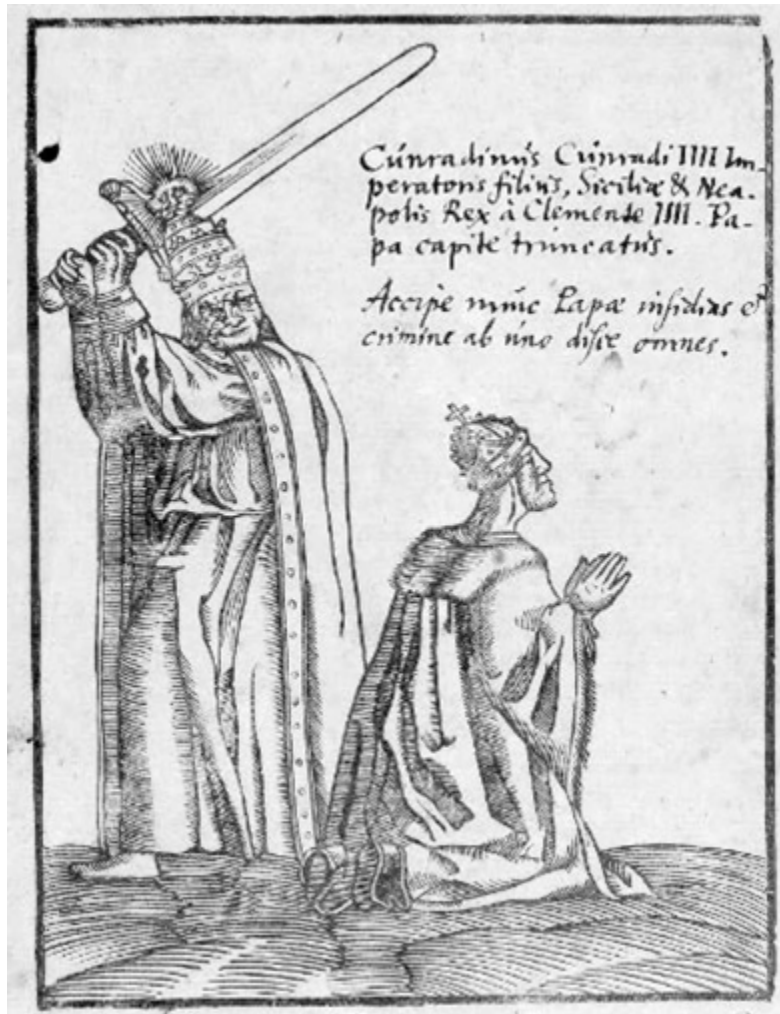 Cunradinus Cunradi IIII Im-
peratoris filius, Siciliæ & Nea-
polis Rex à Clemente IIII. Pa-
pa capite truncatus.
Accipe nunc Papæ insidias &
crimine ab uno disce omnes.